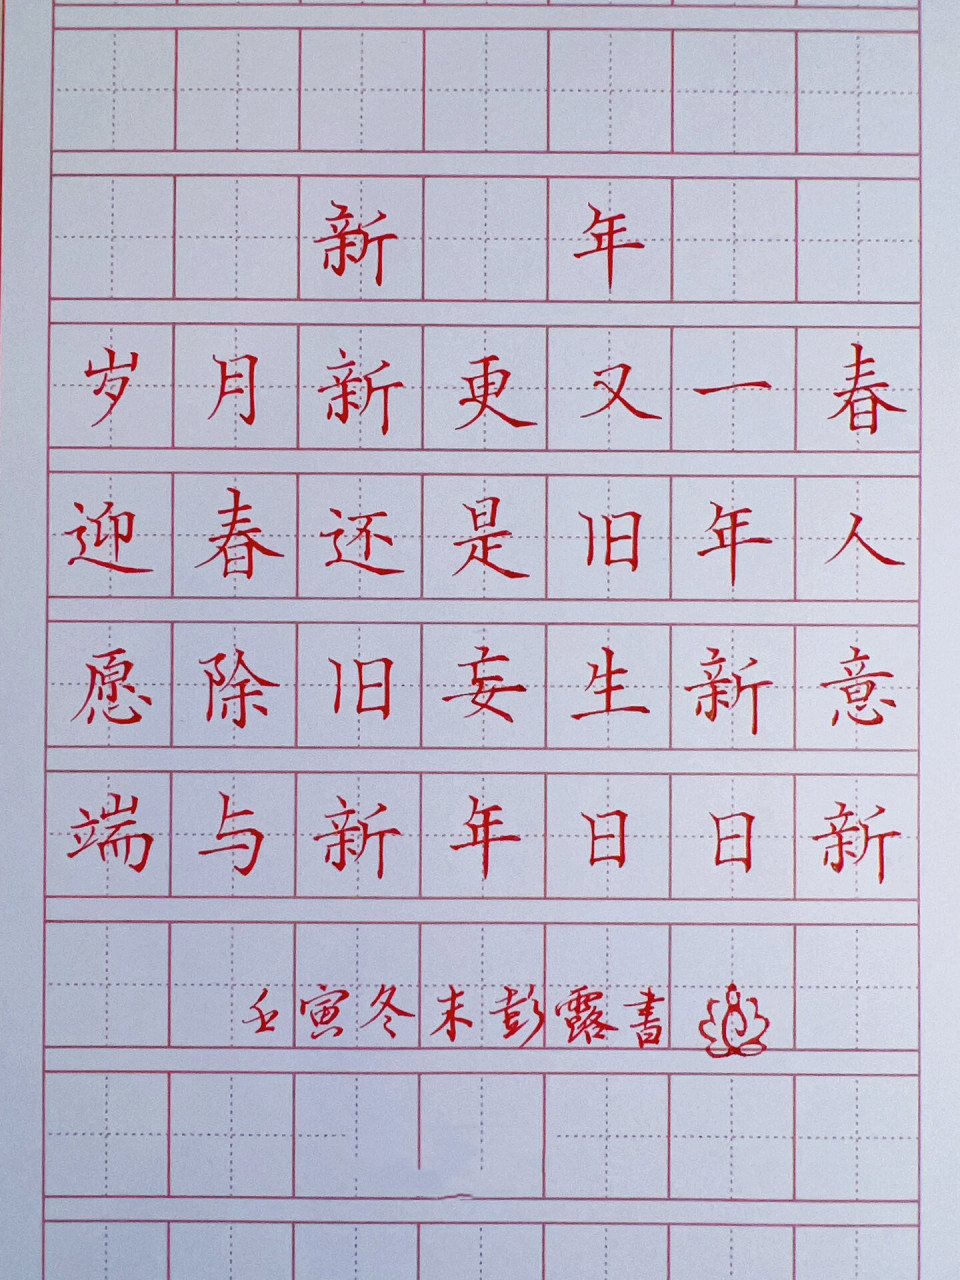 新年
岁月新更又一春
迎春还是旧年人
愿除旧妄生新意
端与新年日日新
壬寅冬末彭露書